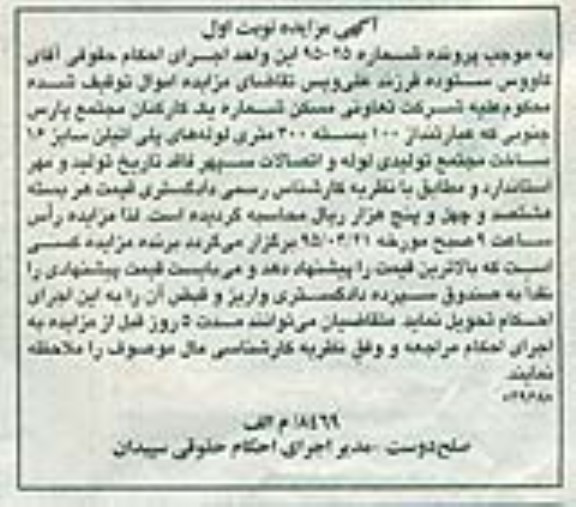 آگهی مزایده نوبت اول
به موجب پرونده شماره ۲۵-۹۵ این واحد اجرای احکام حقوقی آقای
کاووس ستوده فرزند علی‌ویس تقاضای مزایده اموال توقیف شده
محکوم‌علیه شرکت تعاونی مسکن شماره یک کارکنان مجتمع پارس
جنوبی که عبارتنداز ۱۰۰ بسته ۳۰۰ متری لوله‌های پلی اتیلن سایز ۱۶
ساخت مجتمع تولیدی لوله و اتصالات سپهر فاقد تاریخ تولید و مهر
استاندارد و مطابق با نظریه کارشناس رسمی دادگستری قیمت هر بسته
هشتصد و چهل و پنج هزار ریال محاسبه گردیده است. لذا مزایده رأس
ساعت ۹ صبح مورخه ۹۵/۰۳/۲۱ برگزار می‌گردد برنده مزایده کسی
است که بالاترین قیمت را پیشنهاد دهد و می‌بایست قیمت پیشنهادی را
نقداً به صندوق سپرده دادگستری واریز و قبض آن را به این اجرای
احکام تحویل نماید. متقاضیان می‌توانند مدت ۵ روز قبل از مزایده به
اجرای احکام مراجعه و وفق نظریه کارشناسی مال موصوف را ملاحظه
نمایند.
۱۸۴۶۹/ م الف
صلح‌دوست -مدیر اجرای احکام حقوقی سپیدان